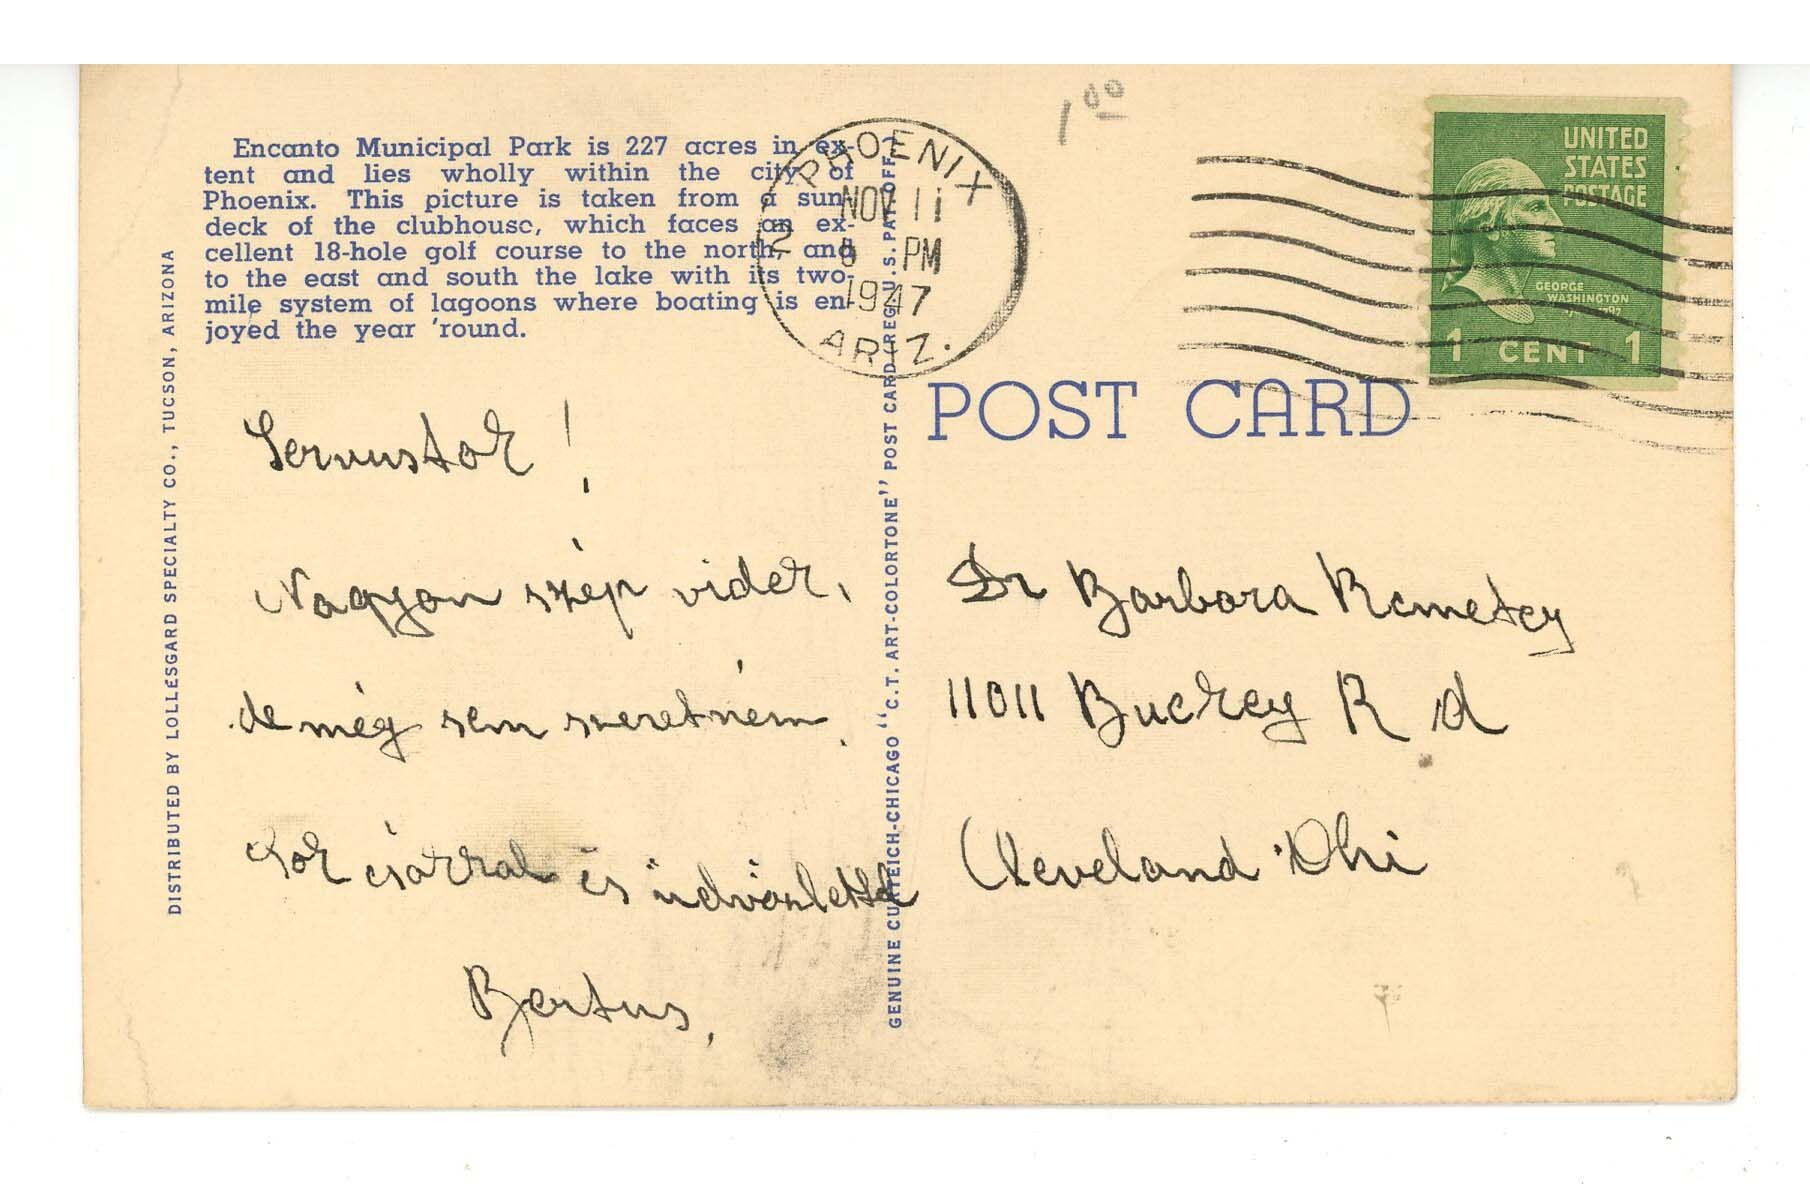 Encanto Municipal Park is 227 acres in ex-
tent and lies wholly within the city of
Phoenix. This picture is taken from a sun
deck of the clubhouse, which faces an ex-
cellent 18-hole golf course to the north, and
to the east and south the lake with its two-
mile system of lagoons where boating is en-
joyed the year 'round.
DISTRIBUTED BY LOLLESGARD SPECIALTY CO., TUCSON, ARIZONA
GENUINE CURTEICH-CHICAGO "C.T. ART-COLORTONE" POST CARD REG. U.S. PAT. OFF.
PHOENIX
NOV 11
PM
1947
ARIZ.
2
1 00
UNITED
STATES
POSTAGE
GEORGE
WASHINGTON
1 CENT 1
POST CARD
Servustok!
Nagyon szép videk,
de még sem szeretném
Sok csokkal és üdvözlettel
Bertus,
Dr Barbara Remetey
11011 Buckey Rd
Cleveland Ohi